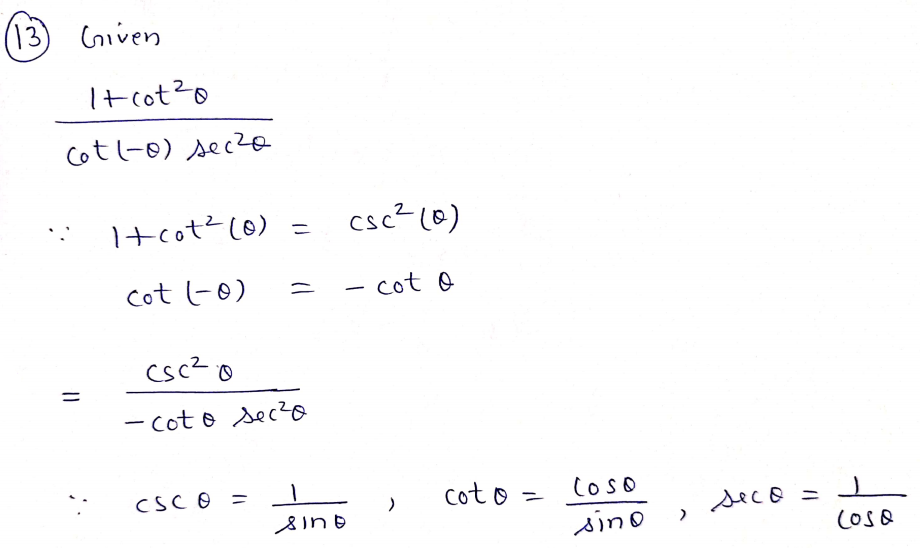 (13) Given
1+cot²θ
cot(-θ) sec²θ
∵ 1+cot²(θ) = csc²(θ)
cot(-θ) = - cot θ
= csc²θ
- cot θ sec²θ
∵ csc θ = 1/sin θ , cot θ = cos θ/sin θ , sec θ = 1/cos θ